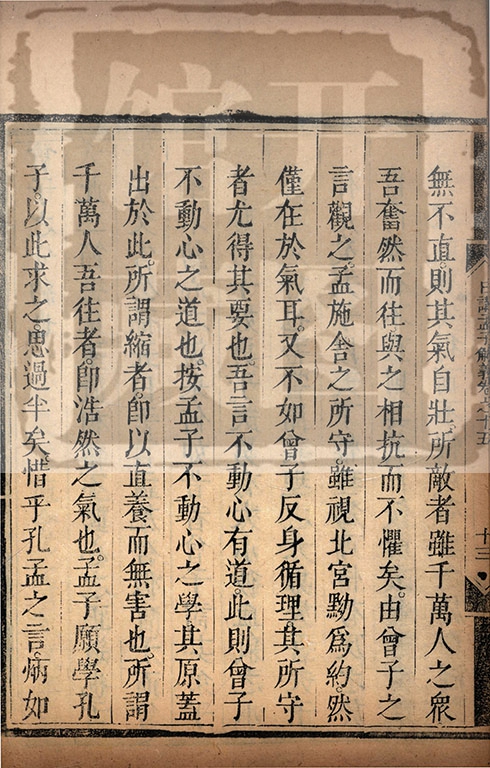 無不直則其氣自壯所敵者雖千萬人之衆
吾奮然而往與之相抗而不懼矣由曾子之
言觀之孟施舍之所守雖視北宮黝爲約然
僅在於氣耳又不如曾子反身循理其所守
者尤得其要也吾言不動心有道此則曾子
不動心之道也按孟子不動心之學其原蓋
出於此所謂縮者卽以直養而無害也所謂
千萬人吾往者卽浩然之氣也孟子願學孔
子以此求之思過半矣惜乎孔孟之言炳如
十三